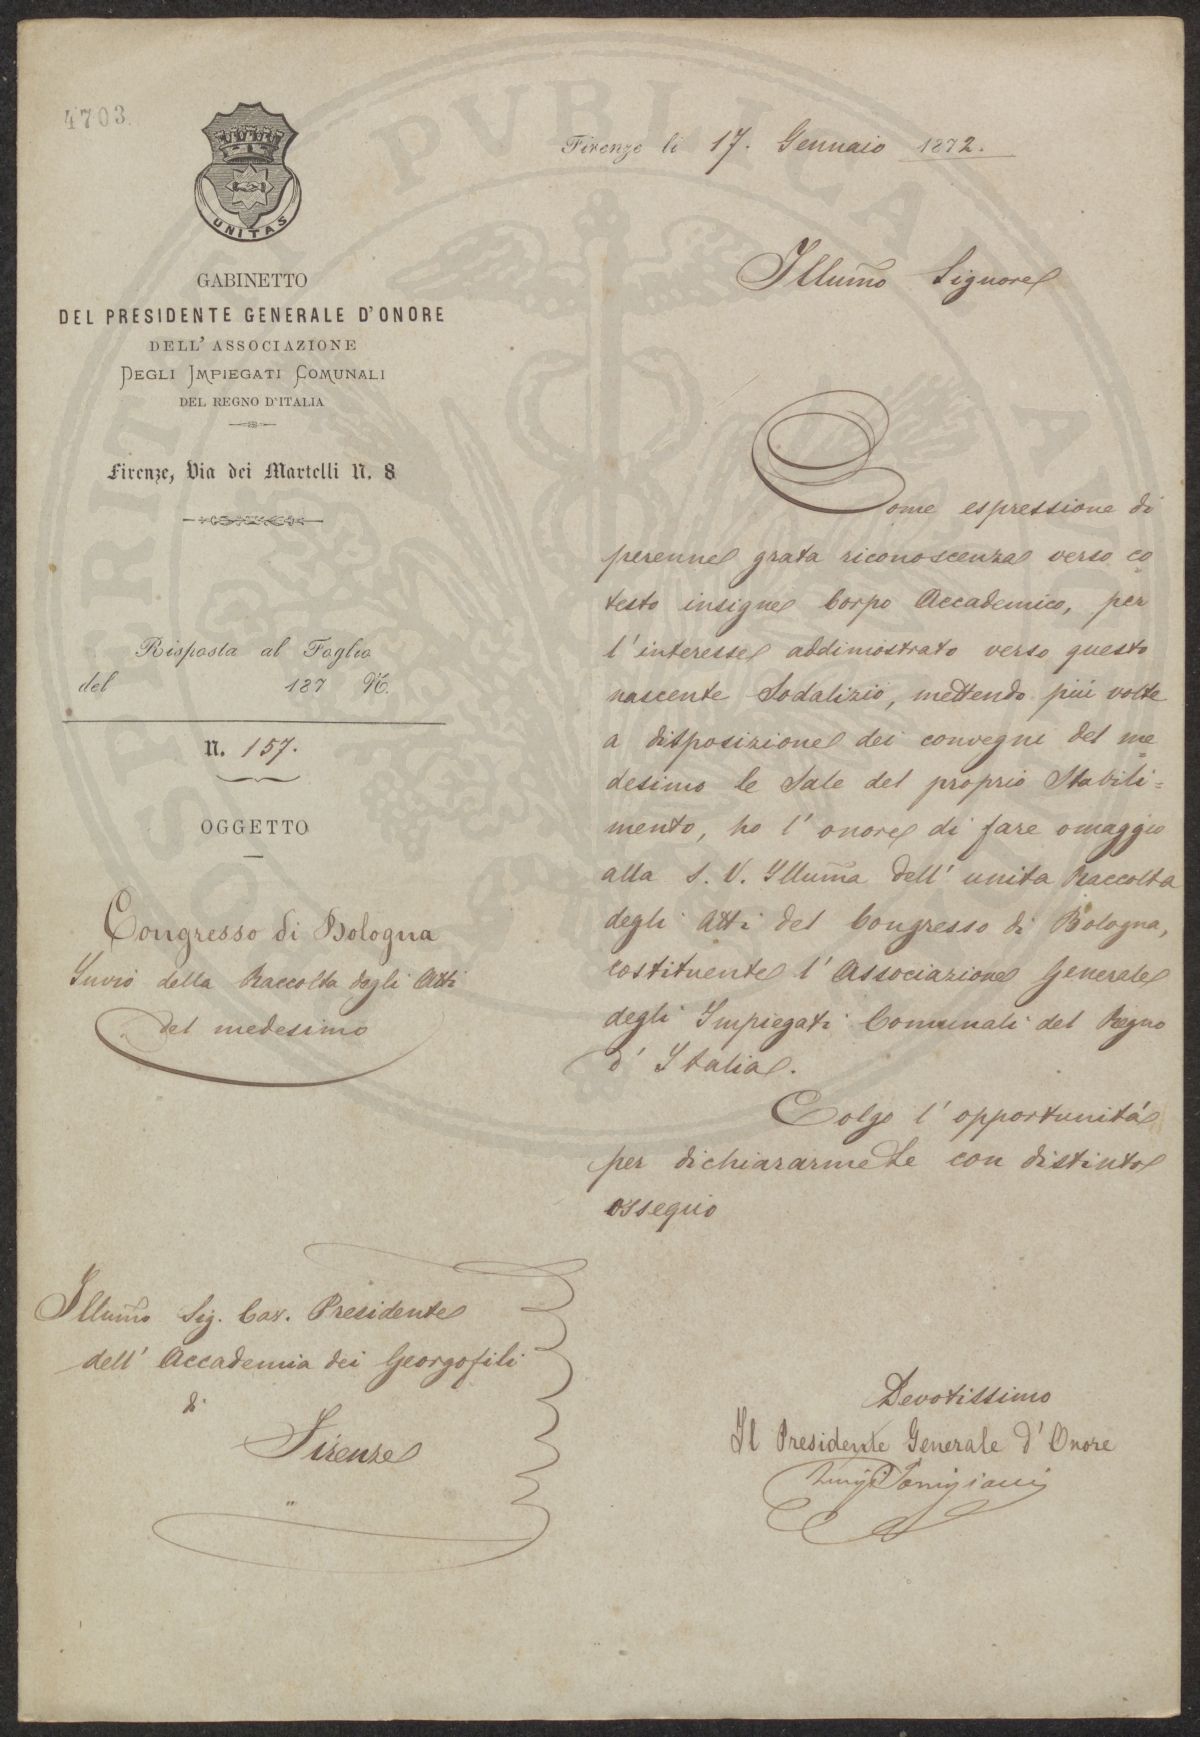 4703.
UNITAS
GABINETTO
DEL PRESIDENTE GENERALE D'ONORE
DELL'ASSOCIAZIONE
DEGLI IMPIEGATI COMUNALI
DEL REGNO D'ITALIA
Firenze, Via dei Martelli N. 8
Risposta al Foglio
del 187 N.
N. 157.
OGGETTO
Congresso di Bologna
Invio della Raccolta degli Atti
del medesimo
Firenze li 17. Gennaio 1872.
Illum̃o Signore
Come espressione di
perenne grata riconoscenza verso co
testo insigne Corpo Accademico, per
l'interesse addimostrato verso questo
nascente Sodalizio, mettendo più volte
a disposizione dei convegni del me
desimo le Sale del proprio Stabili=
mento, ho l'onore di fare omaggio
alla S. V. Illum̃a dell'unita Raccolta
degli Atti del Congresso di Bologna,
costituente l'Associazione Generale
degli Impiegati Comunali del Regno
d'Italia.
Colgo l'opportunità
per dichiararmeLe con distinto
ossequio
Illum̃o Sig. Cav. Presidente
dell'Accademia dei Georgofili
di
Firenze
Devotissimo
Il Presidente Generale d'Onore
Luigi